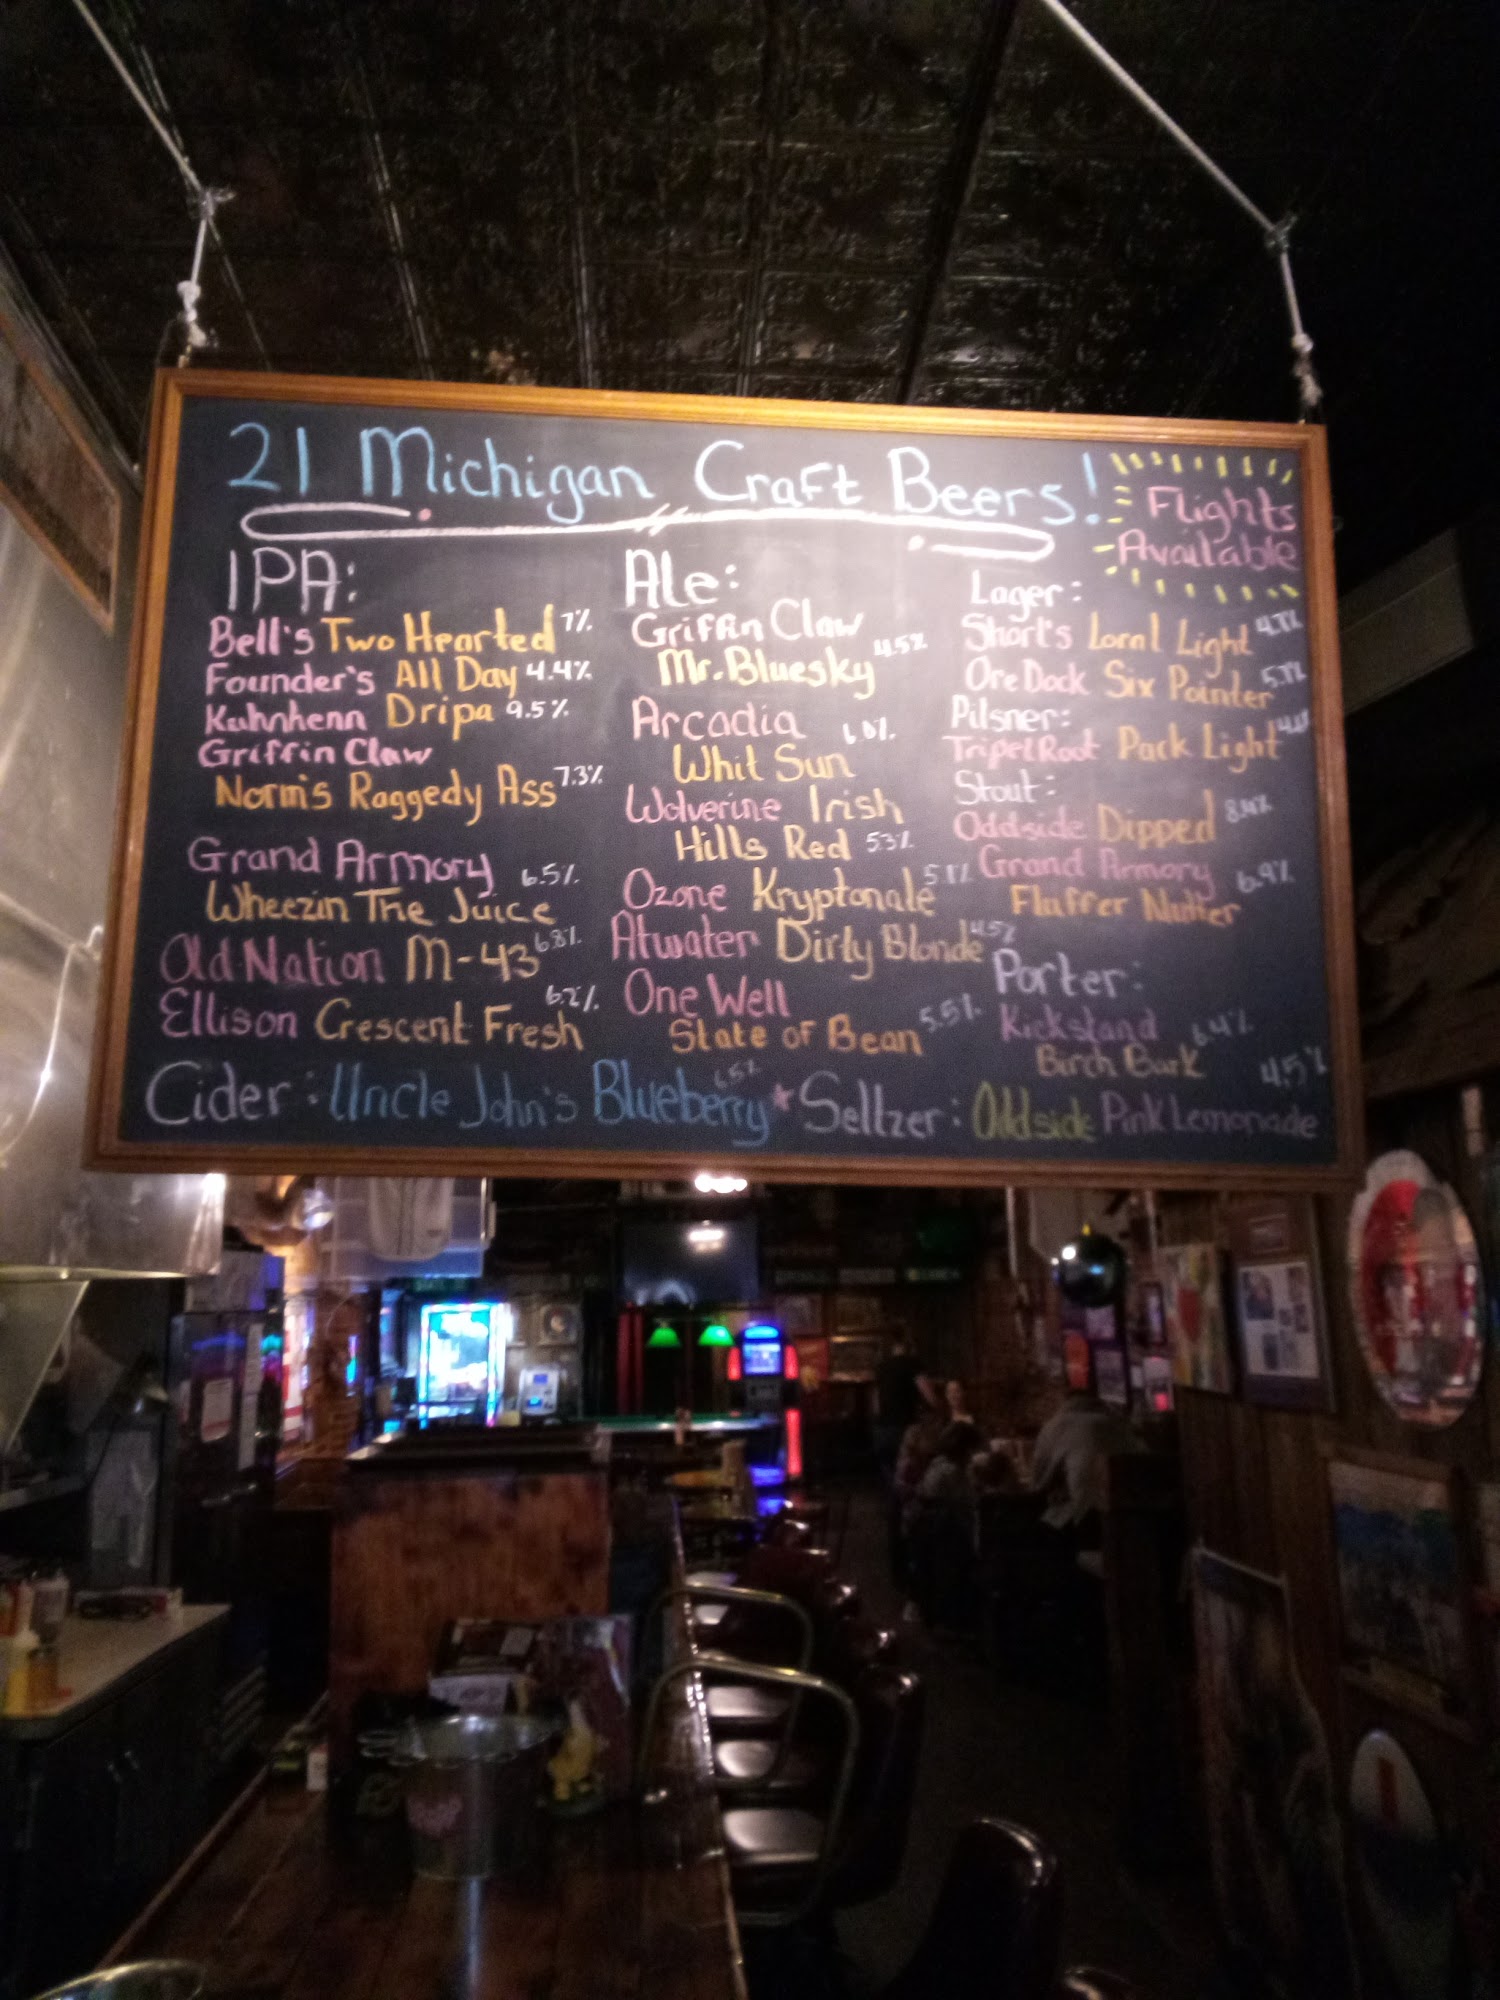 21 Michigan Craft Beers!
Flights
Available
IPA:
Bell's Two Hearted 7%
Founder's All Day 4.4%
Kuhnhenn Dripa 9.5%
Griffin Claw
Norm's Raggedy Ass 7.3%
Grand Armory 6.5%
Wheezin The Juice
Old Nation M-43 6.8%
Ellison Crescent Fresh 6.2%
Ale:
Griffin Claw
Mr. Bluesky 4.5%
Arcadia
Whit Sun
Wolverine Irish
Hills Red 5.3%
Ozone Kryptonale 5.1%
Atwater Dirty Blonde 4.5%
One Well
State of Bean 5.5%
Lager:
Short's Local Light
Ore Dock Six Pointer
Pilsner:
Tripel Root Pack Light
Stout:
Oddside Dipped
Grand Armory 6.9%
Fluffer Nutter
Porter:
Kickstand
Birch Bark 6.4%
Cider: Uncle John's Blueberry 6.5% * Seltzer: Oddside Pink Lemonade 4.5%